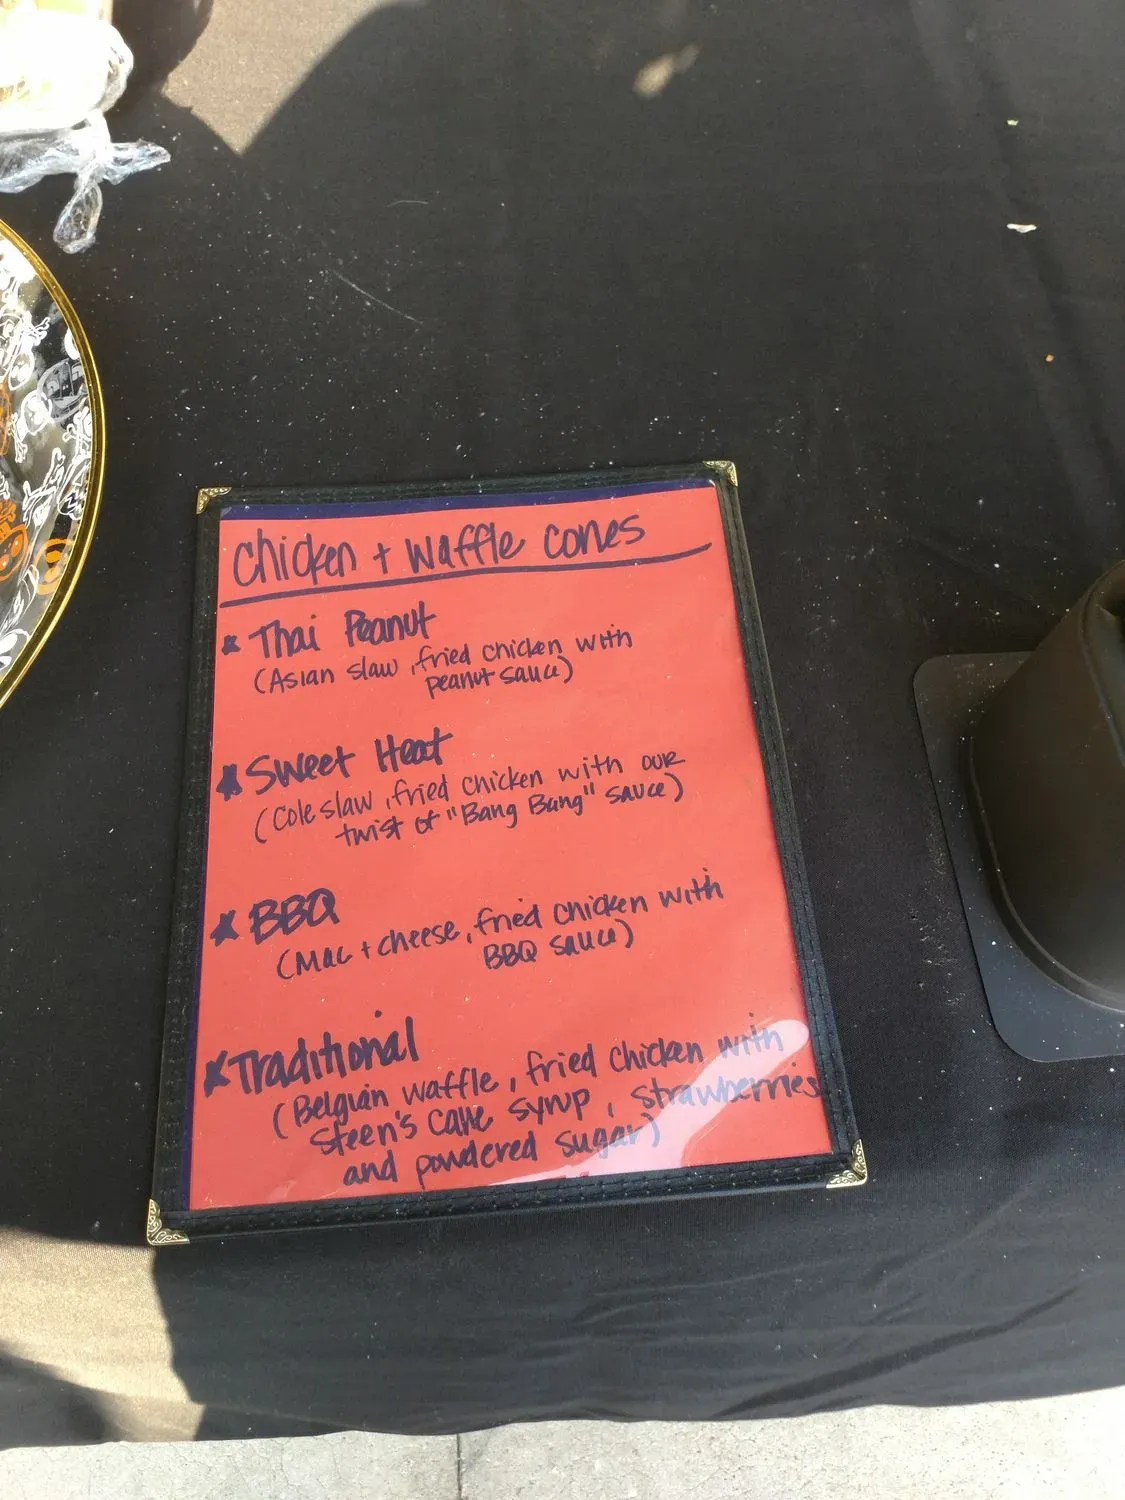 Chicken + Waffle Cones
* Thai Peanut
(Asian slaw, fried chicken with
peanut sauce)
* Sweet Heat
(Cole slaw, fried chicken with our
twist of "Bang Bang" sauce)
* BBQ
(Mac + cheese, fried chicken with
BBQ sauce)
* Traditional
(Belgian waffle, fried chicken with
Steen's Cane syrup, strawberries
and powdered sugar)